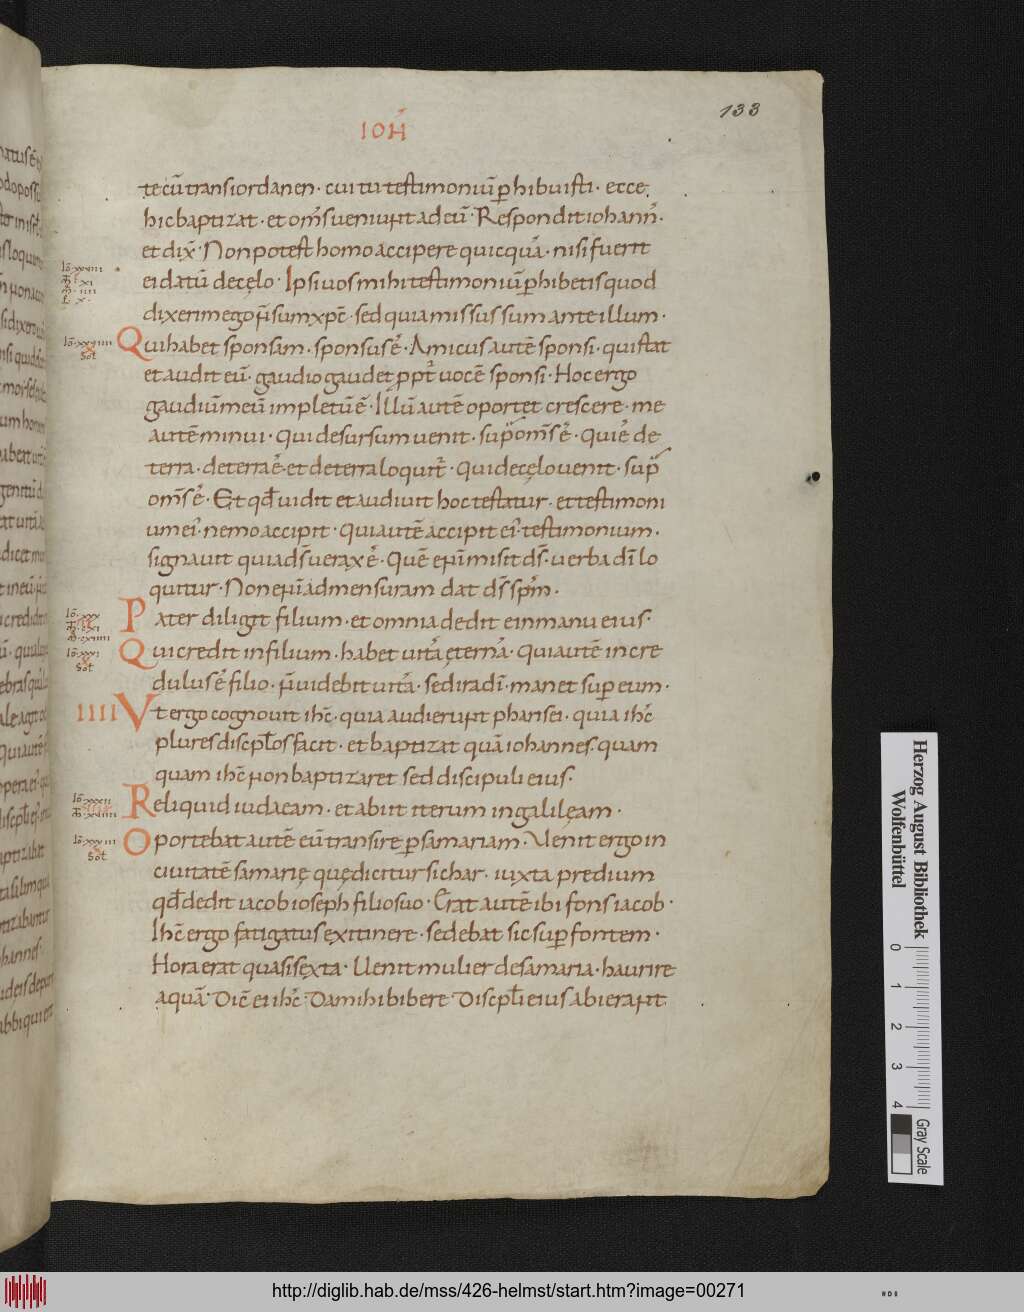 133
IOH̄
te cū trans iordanen · cui tu testimoniū ꝑhibuisti · ecce
hic baptizat · et om̄s ueniunt ad eū · Respondit iohann̄ ·
et dix̄ · Non potest homo accipere quicquā · nisi fuerit
ei datū de cęlo · Ipsi uos mihi testimoniū ꝑhibetis quod
dixerim ego n̄ sum xp̄c · sed quia missus sum ante illum ·
Qui habet sponsam · sponsus ē · Amicus autē sponsi · qui stat
et audit eū · gaudio gaudet ppt̄ uocē sponsi · Hoc ergo
gaudiū meū impletū ē · Illū autē oportet crescere · me
autē minui · Qui desursum uenit · sup̄ om̄s ē · Qui ē de
terra · de terra ē · et de terra loquit̄ · Qui de cęlo uenit · sup̄
om̄s ē · Et qđ uidit et audiuit hoc testatur · et testimoni
um ei' · nemo accipit · Qui autē accipit ei' testimonium ·
signauit quia ds̄ uerax ē · Quē eni̅ misit ds̄ · uerba dī lo
quitur · Non eni̅ ad mensuram dat ds̄ sp̄m ·
Pater diligit filium · et omnia dedit ei in manu eius ·
Qui credit in filium · habet uitā ęternā · Qui autē incre
dulus ē filio · n̄ uidebit uitā · sed ira dī · manet sup eum ·
IIII Vt ergo cognouit ihc̄ · quia audierunt pharisei · quia ihc̄
plures discpłos facit · et baptizat quā iohannes · quam
quam ihc̄ non baptizaret sed discipuli eius ·
Reliquid iudaeam · et abiit iterum in galilęam ·
Oportebat autē eū transire ꝑ samariam · Uenit ergo in
ciuitatē samarię quę dicitur sichar · iuxta predium
qđ dedit iacob ioseph filio suo · Erat autē ibi fons iacob ·
Ihc̄ ergo fatigatus ex itinere · sedebat sic sup fontem ·
Hora erat quasi sexta · Uenit mulier de samaria · haurire
aquā · Dic̄ ei ihc̄ · Da mihi bibere Discpłi eius abierant
Herzog August Bibliothek
Wolfenbüttel
0 1 2 3 4
Gray Scale
http://diglib.hab.de/mss/426-helmst/start.htm?image=00271